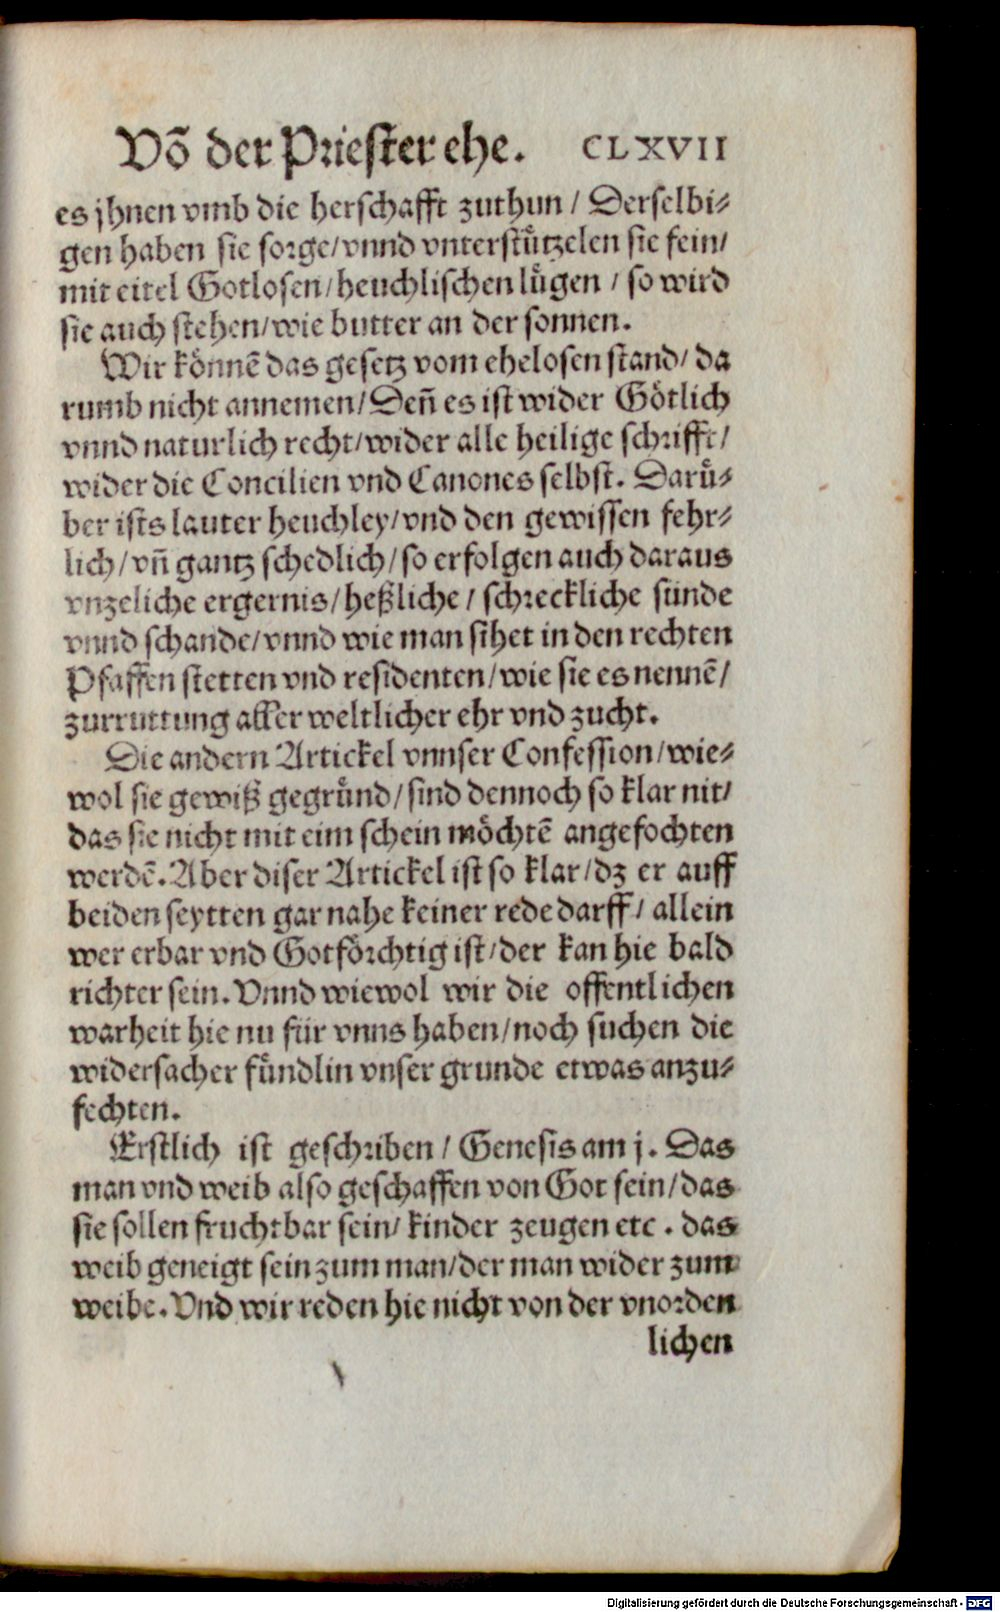 Võ der Priester ehe. CLXVII
es jhnen vmb die herschafft zuthun / Derselbi⸗
gen haben sie sorge/vnnd vnterstützelen sie fein/
mit eitel Gotlosen/heuchlischen lügen / so wird
sie auch stehen/wie butter an der sonnen.
Wir könnẽ das gesetz vom ehelosen stand/ da
rumb nicht annemen/Deñ es ist wider Götlich
vnnd naturlich recht/wider alle heilige schrifft/
wider die Concilien vnd Canones selbst. Darü⸗
ber ists lauter heuchley/vnd den gewissen fehr⸗
lich/vñ gantz schedlich/so erfolgen auch daraus
vnzeliche ergernis/heßliche / schreckliche sünde
vnnd schande/vnnd wie man sihet in den rechten
Pfaffen stetten vnd residenten/wie sie es nennẽ/
zurruttung aller weltlicher ehr vnd zucht.
Die andern Artickel vnnser Confession/wie⸗
wol sie gewiß gegründ/sind dennoch so klar nit/
das sie nicht mit eim schein möchtẽ angefochten
werdẽ. Aber diser Artickel ist so klar/dz er auff
beiden seytten gar nahe keiner rede darff/ allein
wer erbar vnd Gotförchtig ist/der kan hie bald
richter sein. Vnnd wiewol wir die offentlichen
warheit hie nu für vnns haben/noch suchen die
widersacher fündlin vnser grunde etwas anzu⸗
fechten.
Erstlich ist geschriben / Genesis am j. Das
man vnd weib also geschaffen von Got sein/das
sie sollen fruchtbar sein/ kinder zeugen etc. das
weib geneigt sein zum man/der man wider zum
weibe. Vnd wir reden hie nicht von der vnorden
lichen
Digitalisierung gefördert durch die Deutsche Forschungsgemeinschaft - DFG